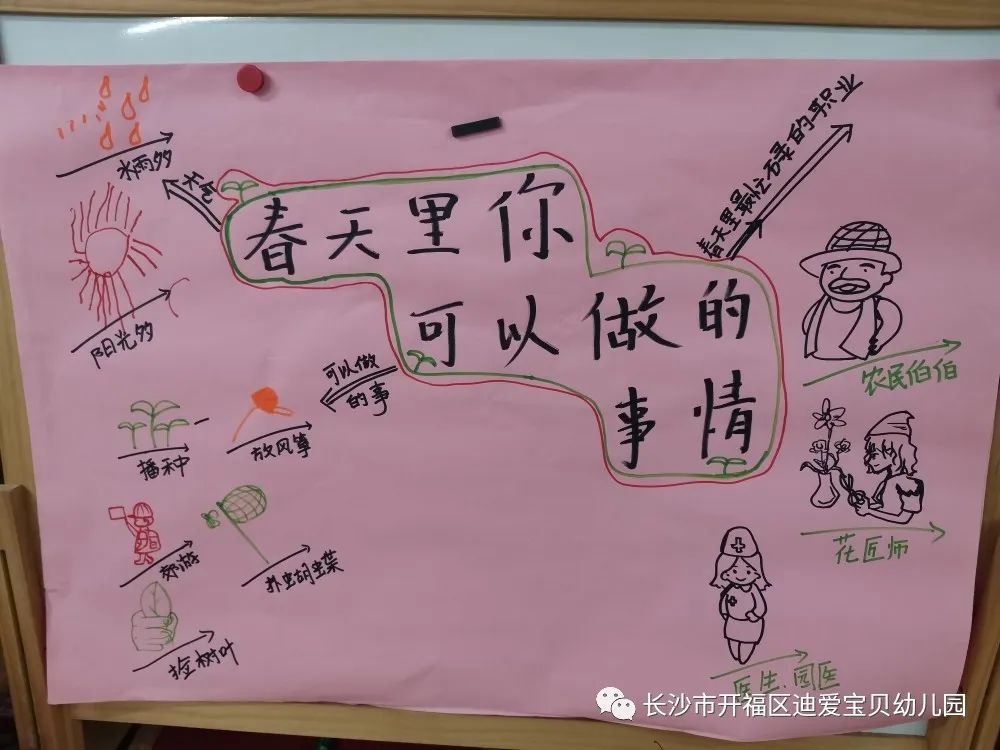 春天里你
可以做的
事情
天气
水雨多
阳光多
可以做
的事
播种
放风筝
郊游
扑蝴蝶
捡树叶
春天里最忙碌的职业
农民伯伯
花匠师
医生、园医
长沙市开福区迪爱宝贝幼儿园